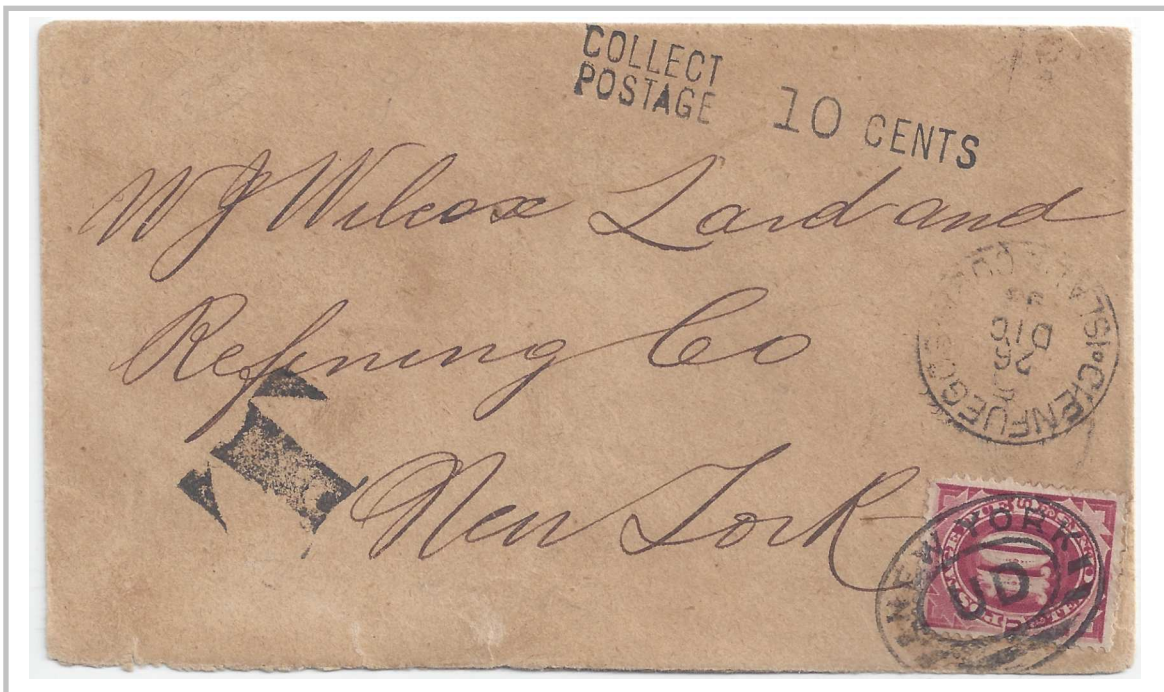 COLLECT
POSTAGE 10 CENTS
W J Wilcox Lard and
Refining Co
New York
CIENFUEGOS
26
DIC
T
NEW YORK
UD
10